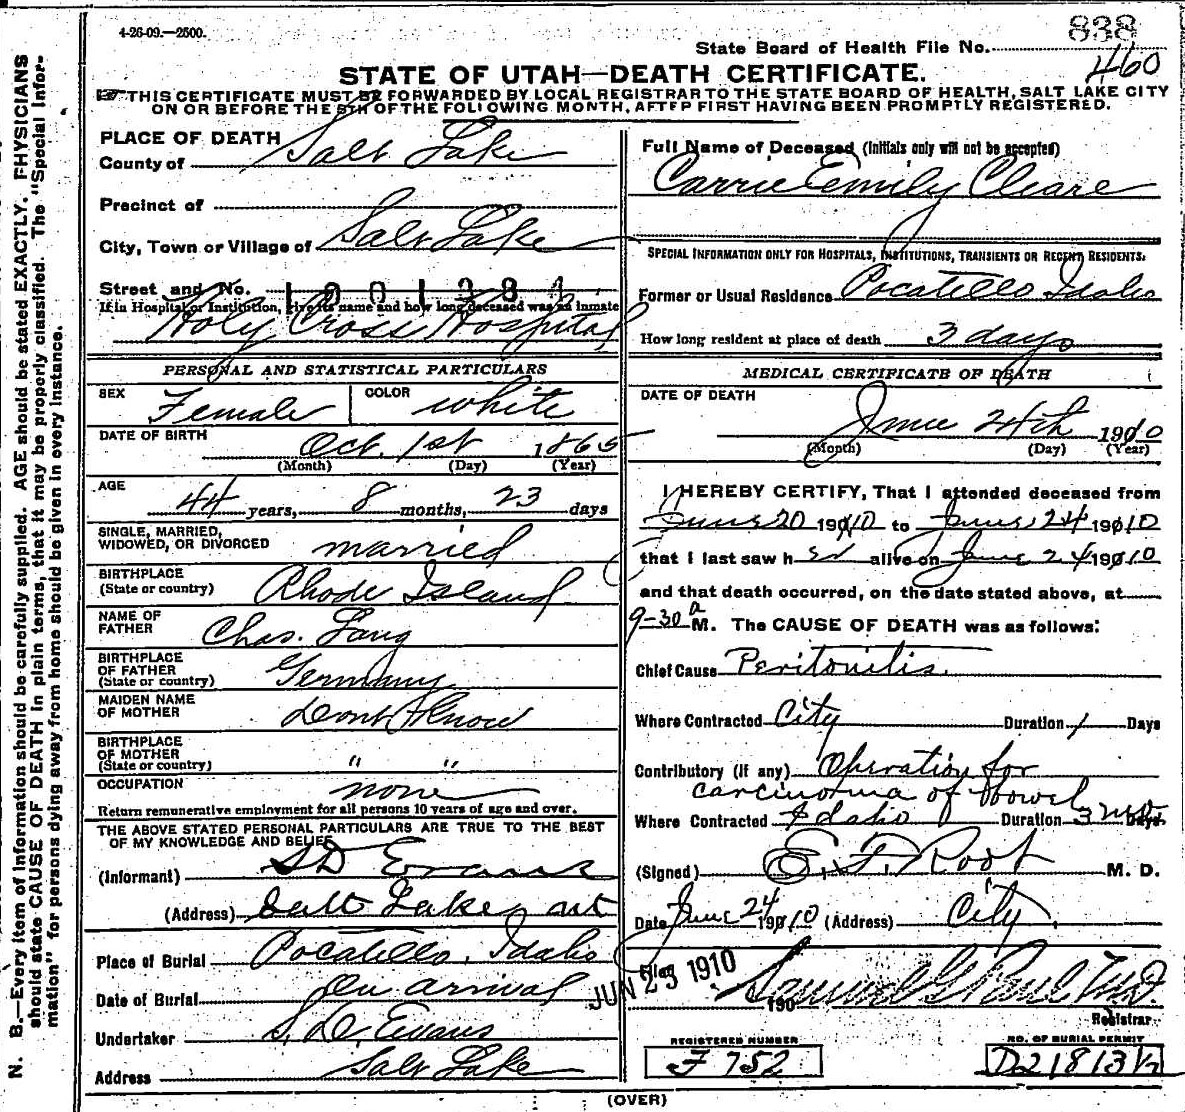 4-26-09.—2500.
838
State Board of Health File No.
460
STATE OF UTAH—DEATH CERTIFICATE.
THIS CERTIFICATE MUST BE FORWARDED BY LOCAL REGISTRAR TO THE STATE BOARD OF HEALTH, SALT LAKE CITY
ON OR BEFORE THE 5TH OF THE FOLLOWING MONTH, AFTER FIRST HAVING BEEN PROMPTLY REGISTERED.
N. B.—Every item of information should be carefully supplied. AGE should be stated EXACTLY. PHYSICIANS
should state CAUSE OF DEATH in plain terms, that it may be properly classified. The "Special Infor-
mation" for persons dying away from home should be given in every instance.
PLACE OF DEATH
County of Salt Lake
Precinct of
City, Town or Village of Salt Lake
Street and No.
If in Hospital or Institution, give its name and how long deceased was an inmate
Holy Cross Hospital
PERSONAL AND STATISTICAL PARTICULARS
SEX Female COLOR white
DATE OF BIRTH Oct. 1st 1865
(Month) (Day) (Year)
AGE 44 years, 8 months, 23 days
SINGLE, MARRIED,
WIDOWED, OR DIVORCED married
BIRTHPLACE
(State or country) Rhode Island
NAME OF
FATHER Chas. Lang
BIRTHPLACE
OF FATHER
(State or country) Germany
MAIDEN NAME
OF MOTHER Dont Know
BIRTHPLACE
OF MOTHER
(State or country) " "
OCCUPATION none
Return remunerative employment for all persons 10 years of age and over.
THE ABOVE STATED PERSONAL PARTICULARS ARE TRUE TO THE BEST
OF MY KNOWLEDGE AND BELIEF
(Informant) S D Evans
(Address) Salt Lake
Place of Burial Pocatello, Idaho
Date of Burial On arrival
Undertaker S. D. Evans
Address Salt Lake
Full Name of Deceased (Initials only will not be accepted)
Carrie Emily Cleare
SPECIAL INFORMATION ONLY FOR HOSPITALS, INSTITUTIONS, TRANSIENTS OR RECENT RESIDENTS.
Former or Usual Residence Pocatello Idaho
How long resident at place of death 3 days
MEDICAL CERTIFICATE OF DEATH
DATE OF DEATH
June 24th 1910
(Month) (Day) (Year)
I HEREBY CERTIFY, That I attended deceased from
June 20 1910 to June 24 1910
that I last saw her alive on June 24 1910
and that death occurred, on the date stated above, at
9-30 a M. The CAUSE OF DEATH was as follows:
Chief Cause Peritonitis
Where Contracted City Duration 1 Days
Contributory (if any) Operation for
carcinoma of bowel
Where Contracted Idaho Duration 3 mos. Days
(Signed) E. F. Root M. D.
Date June 24 1910 (Address) City
Filed JUN 25 1910 190
Samuel G Paul MD.
Registrar
REGISTERED NUMBER
F 752
NO. OF BURIAL PERMIT
D21813½
(OVER)